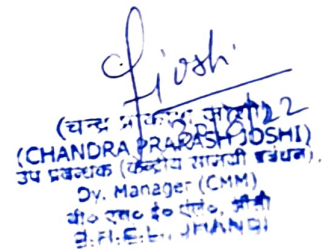 Joshi
(चन्द्र प्रकाश जोशी)
(CHANDRA PRAKASH JOSHI)
उप प्रबन्धक (केन्द्रीय सामग्री प्रबंधन)
Dy. Manager (CMM)
बी० एच० ई० एल०, झाँसी
B.H.E.L., JHANSI